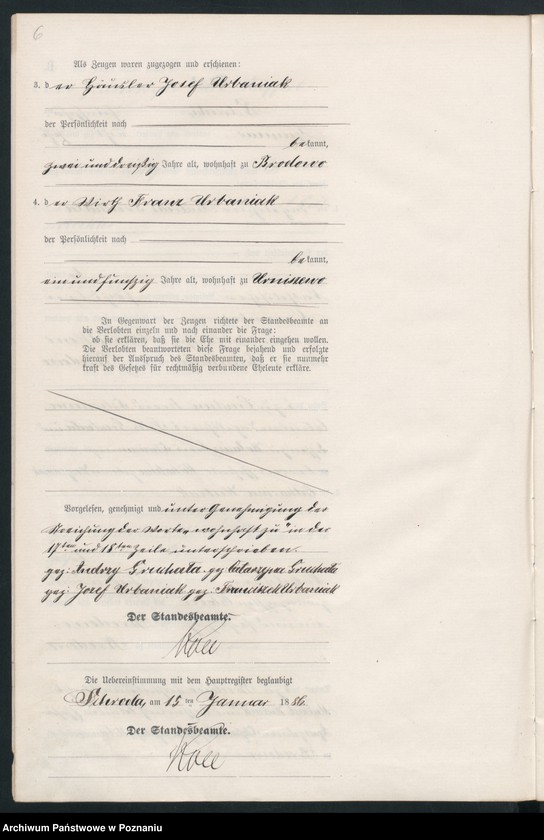 6
Als Zeugen waren zugezogen und erschienen:
3. der Häusler Josef Urbaniak
der Persönlichkeit nach
bekannt,
zwei und dreißig Jahre alt, wohnhaft zu Brodowo
4. der Wirth Franz Urbaniak
der Persönlichkeit nach
bekannt,
ein und fünfzig Jahre alt, wohnhaft zu Urniszewo
In Gegenwart der Zeugen richtete der Standesbeamte an
die Verlobten einzeln und nach einander die Frage:
ob sie erklären, daß sie die Ehe mit einander eingehen wollen.
Die Verlobten beantworteten diese Frage bejahend und erfolgte
hierauf der Ausspruch des Standesbeamten, daß er sie nunmehr
kraft des Gesetzes für rechtmäßig verbundene Eheleute erkläre.
Vorgelesen, genehmigt und unter Genehmigung der
Streichung der Worte „wohnhaft zu" in der
17ten und 18ten Zeile unterschrieben.
gez: Andrzy gez:
gez: Josef Urbaniak gez: Franciszek Urbaniak
Der Standesbeamte.
Die Uebereinstimmung mit dem Hauptregister beglaubigt
Schroda, am 15ten Januar 1886
Der Standesbeamte.
Archiwum Państwowe w Poznaniu